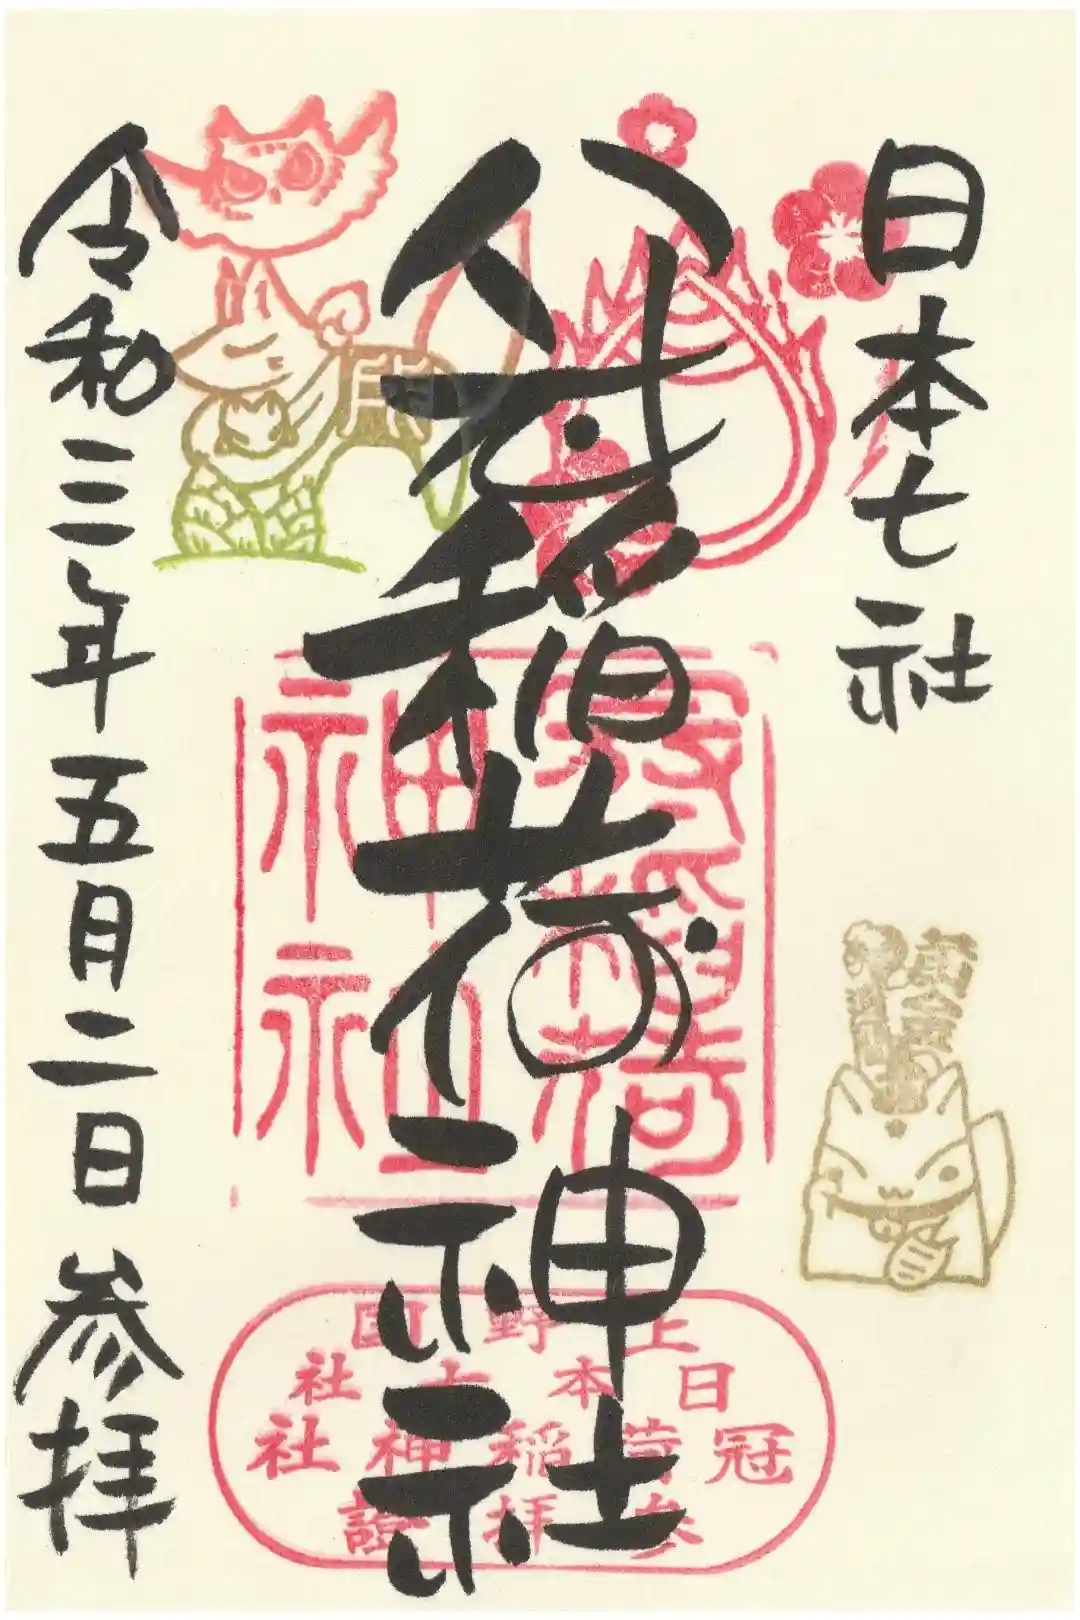 日本七社
稲荷神社
令和三年五月二日参拝
神社
上野国
日本七社
冠稲荷神社
参拝證